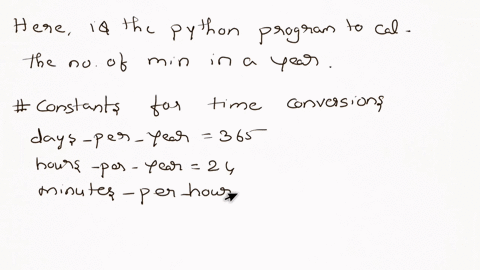 Here, is the python program to cal-
the no. of min in a year.
# Constants for time conversions
days-per-year = 365
hours-per-year = 24
minutes-per-hour